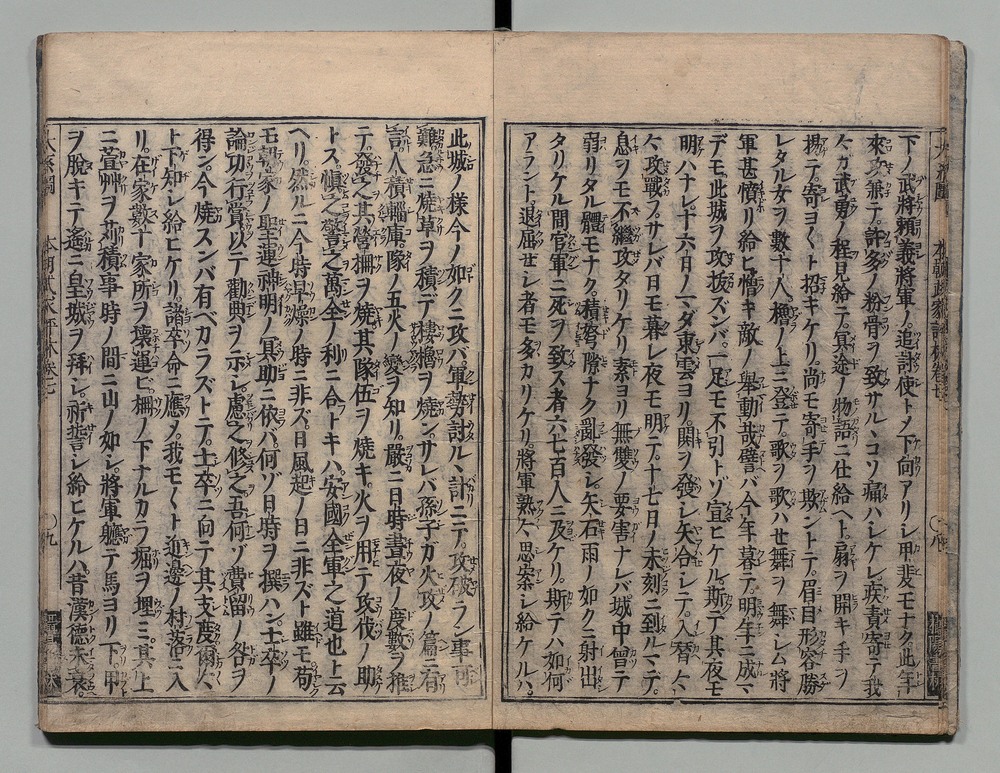 下ノ武將頼義將軍ノ追討使トメ下向アリシ甲斐モナク此年
來攻兼テ許多ノ粉骨ヲ致サルヽコソ痛ハレケレ疾責寄テ我
々カ武勇ノ程見給テ冥途ノ物語ニ仕給ヘト扇ヲ開キ手ヲ
揚テ寄ヨ〱ト招キケリ尚モ寄手ヲ欺ントテ眉目形容勝
レタル女ヲ數十人櫓ノ上ニ登テ歌ヲ歌ハセ舞ヲ舞シム將
軍甚憤リ給ヒ憎キ敵ノ擧動哉譬バ今年暮テ明年ニ成マ
デモ此城ヲ攻抜ズンバ一足モ不引トゾ宣ヒケル斯テ其夜モ
明ハナレ十六日ノマダ東雲ヨリ鬨ヲ發シ矢合シテ入替々
々攻戰フサレバ日モ暮レ夜モ明テ十七日ノ未刻ニ到ルマデ
息ヲモ不繼攻タリケリ素ヨリ無雙ノ要害ナレバ城中曾テ
弱リタル體モナク積弩隙ナク亂發シ矢石雨ノ如クニ射出
タリケル間官軍ニ死ヲ致ス者六七百人ニ及ケリ斯テハ如何
アラント退屈セシ者モ多カリケリ將軍熟々思案シ給ケルハ
此城ノ様今ノ如クニ攻バ軍勢討ルヽ計ニテ攻破ラン事可
難急ニ焼草ヲ積デ樓櫓ヲ燒ンサレバ孫子ガ火攻ノ篇ニ有
言人積輜庫隊ノ五火ノ變ヲ知リ嚴ニ日時晝夜ノ度數ヲ推
テ發之其營柵ヲ燒其隊伍ヲ燒キ火ヲ用テ攻伐ノ助
トス愼之警之萬全ノ利ニ合トキハ安國全軍之道也ト云
ヘリ然ルニ今時早燥ノ時ニ非ズ日風起ノ日ニ非ズト雖モ苟
モ朝家ノ聖運神明ノ冥助ニ依バ何ゾ日時ヲ撰ハン士卒ノ
論功行賞以テ勸興ヲ示シ慮之修之吾何ゾ費留ノ咎ヲ
得ン今燒スンバ有ベカラズトテ士卒ニ向テ其支度爾々
ト下知シ給ヒケリ諸卒命ニ應メ我モ〱ト近邊ノ村落ニ入
リ在家數十家所ヲ壊運ヒ柵ノ下ナルカラ堀ヲ埋ミ其上
ニ萱艸ヲ苅積事時ノ間ニ山ノ如シ將軍軈テ馬ヨリ下甲
ヲ脱キテ遙ニ皇城ヲ拜シ祈誓シ給ヒケルハ昔漢德未衰